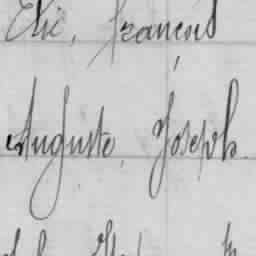 Elie, François
Auguste, Joseph.